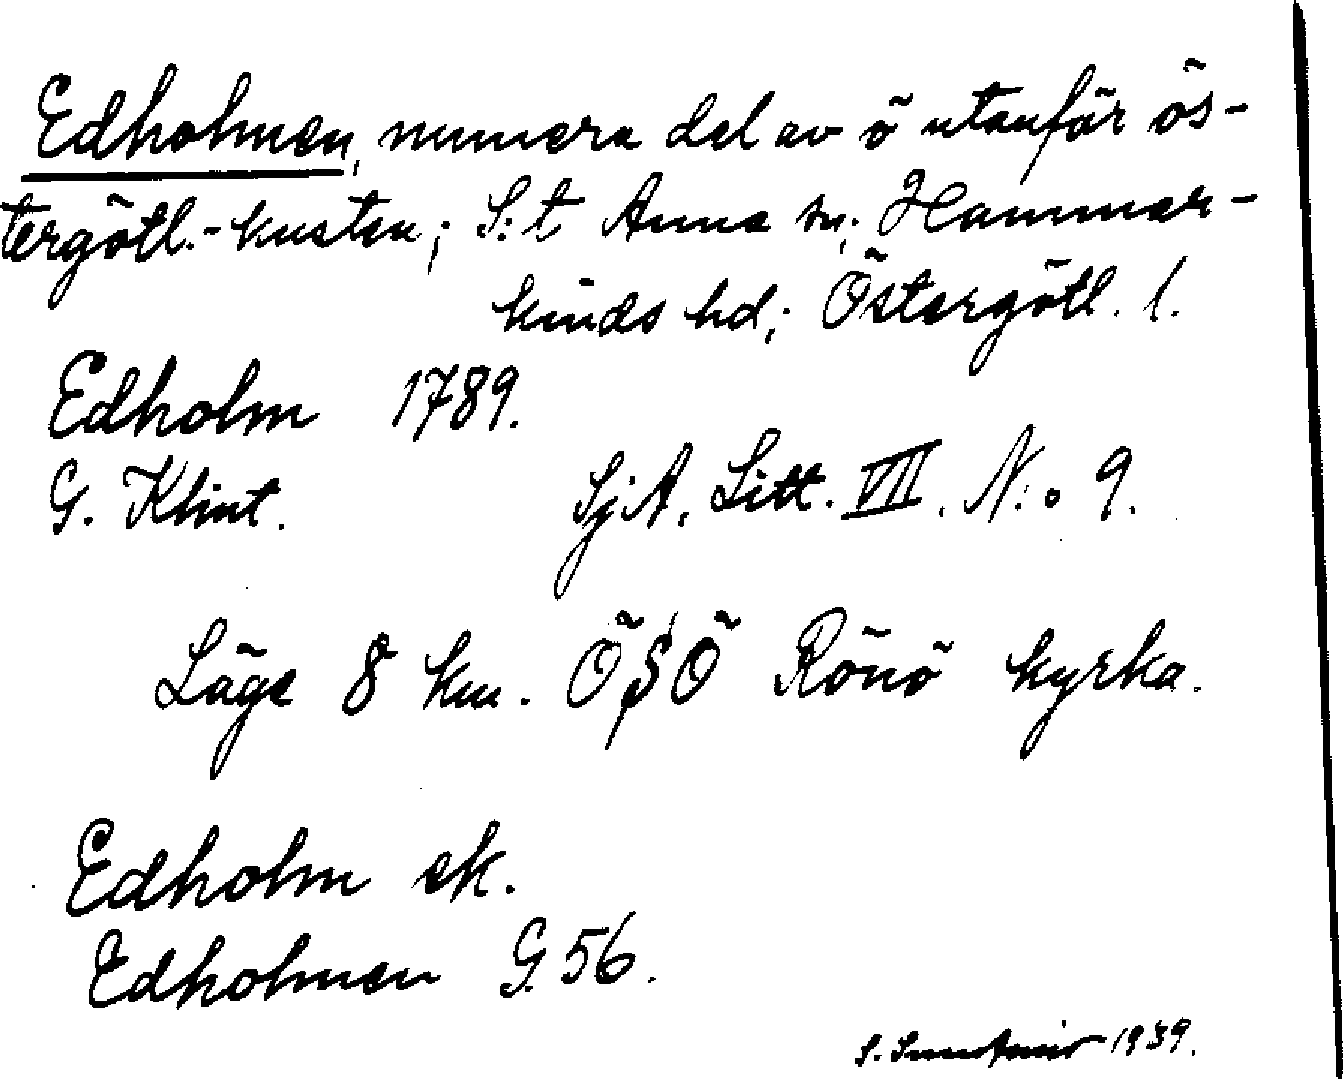 Edholmen, numera del av ö utanför ös-
tergötl.-kusten; S:t Anna sn; Hammar-
kinds hd; Östergötl. l.
Edholm 1789.
G. Klint. SjA. Litt. VII. N:o 9.
Läge 8 km. ÖSÖ Rönö kyrka.
Edholm ek.
Edholmen G. 56.
S. 1939.